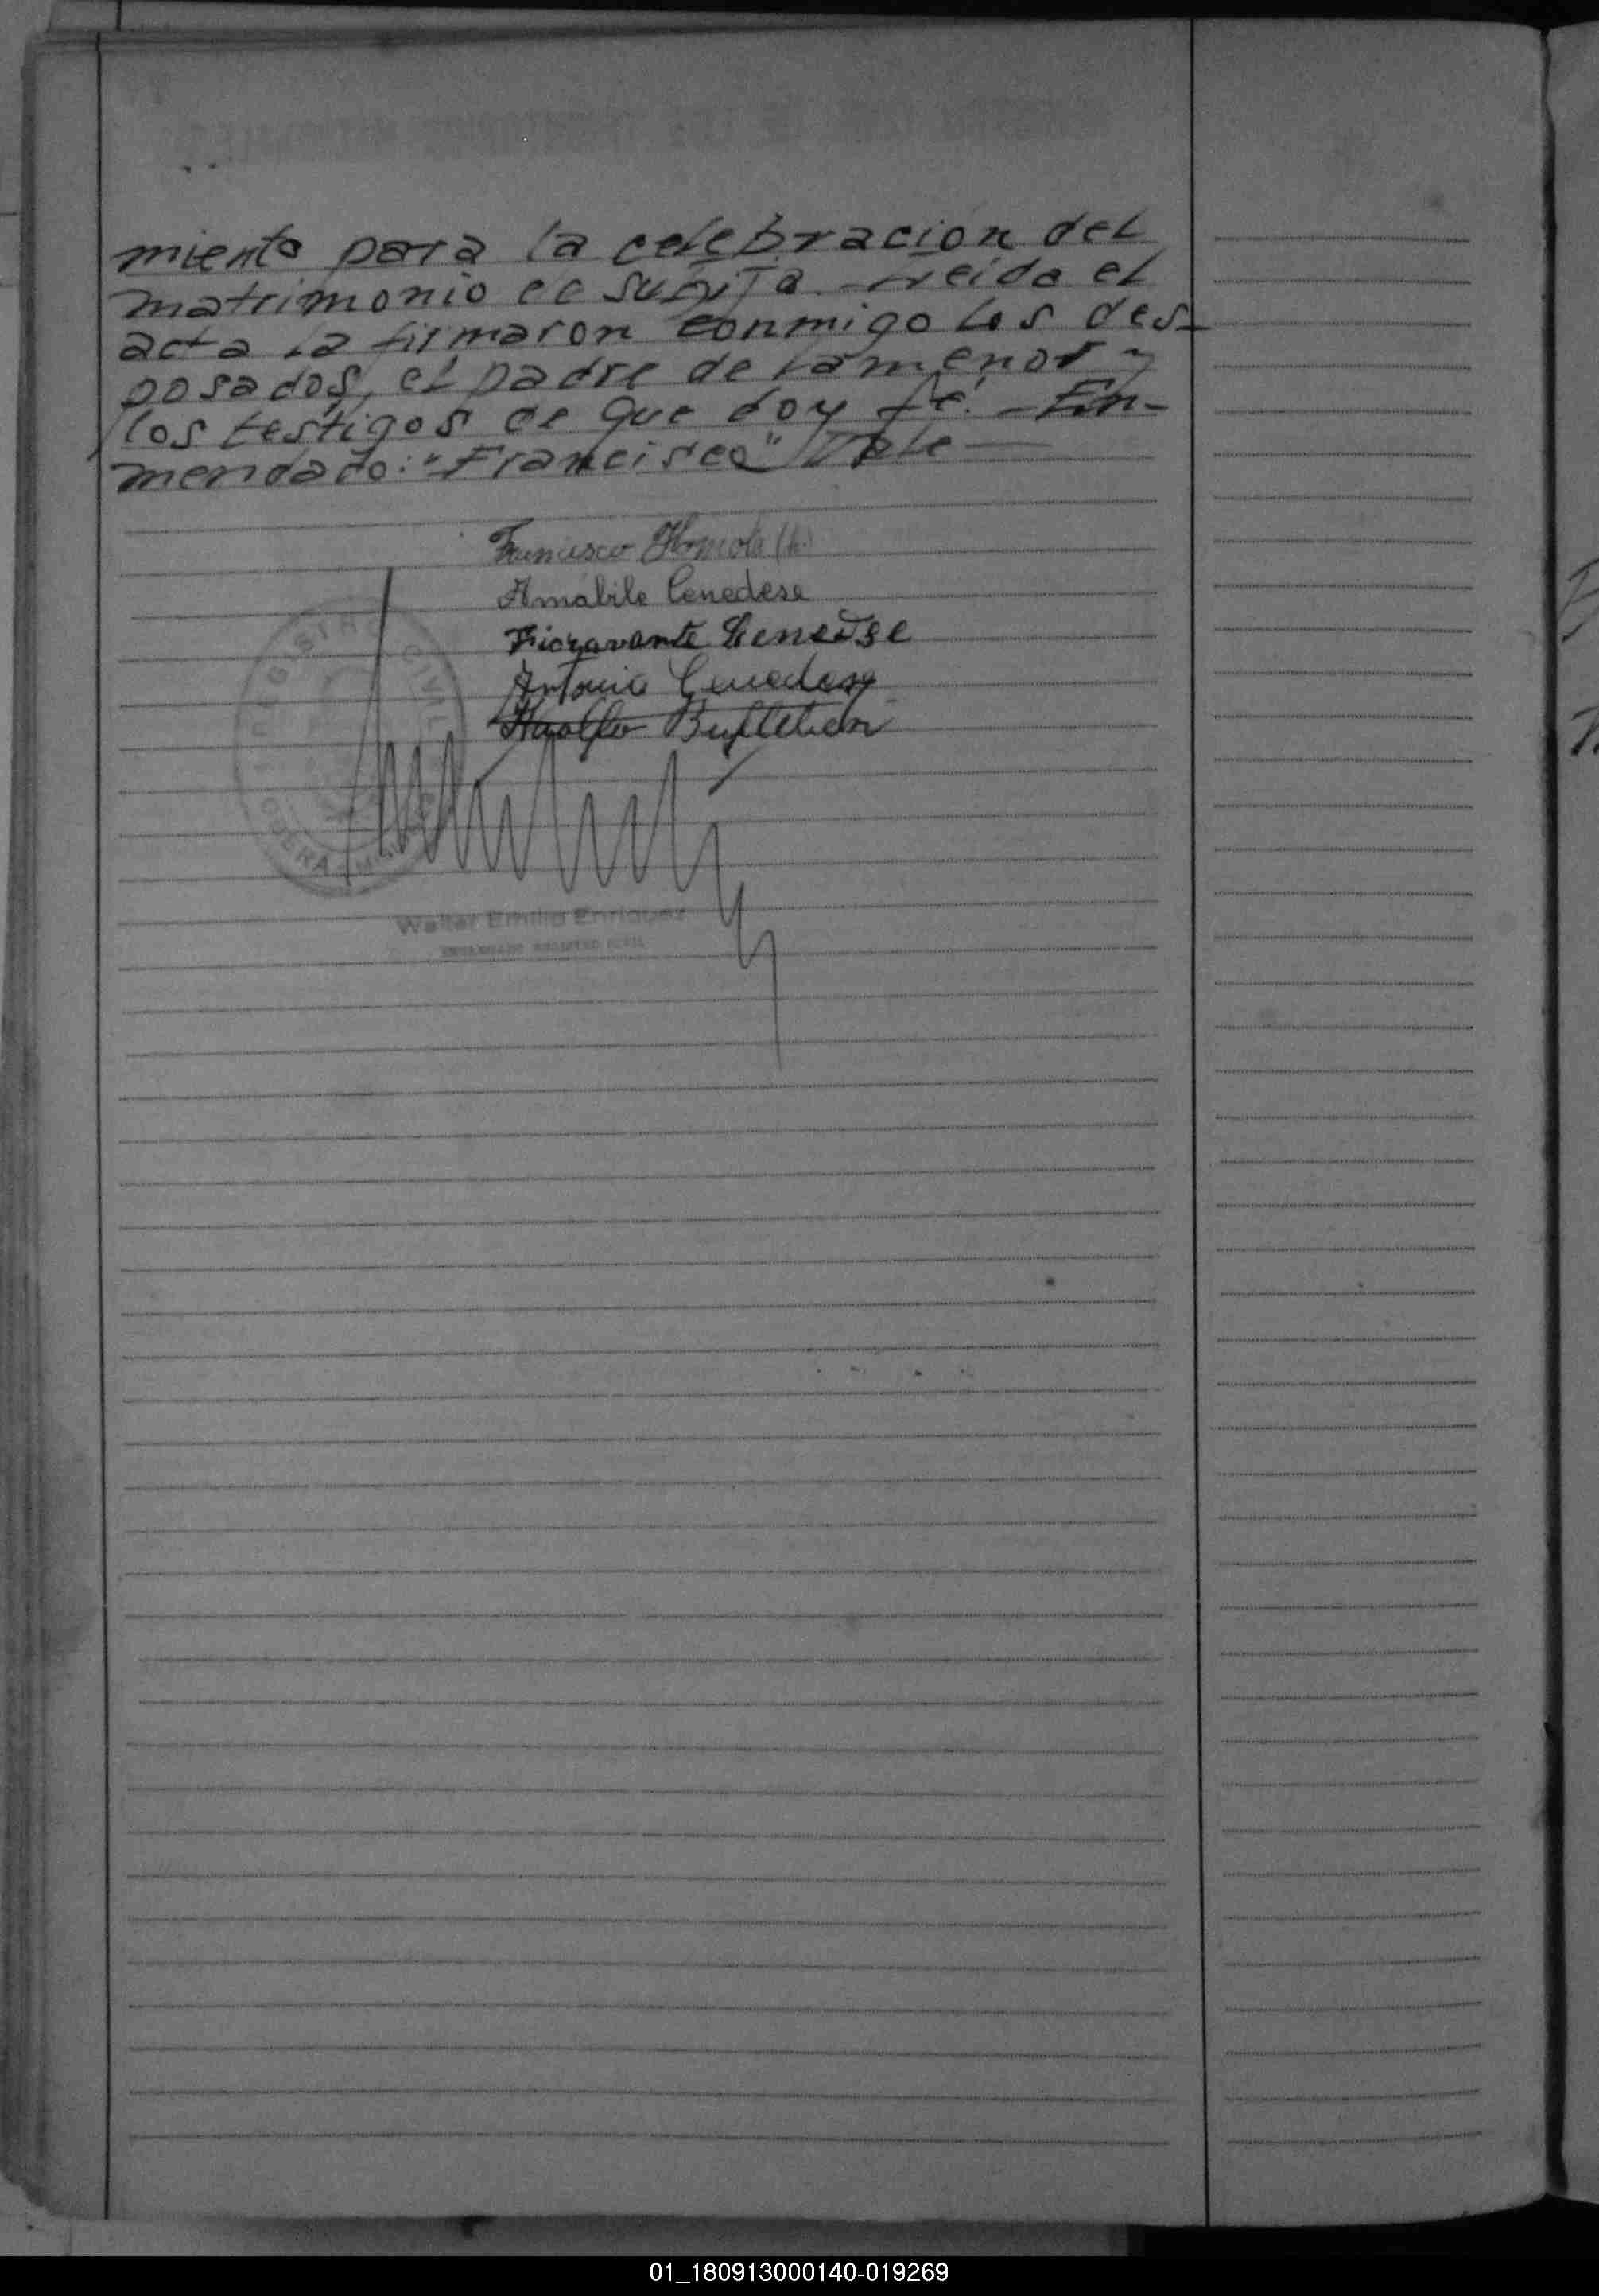 miento para la celebración del
matrimonio ec suprta. Leída el
acta la firmaron conmigo los des-
posados, el padre de la menor y
los testigos de que doy fé. - En-
mendado: "Francisco" Vale
Francisco (h.)
Amábile Cenedese
Fioravante Cenedese
Antonio Cenedese
REGISTRO CIVIL
OBERA
Walter Emilio Enriquez
ENCARGADO REGISTRO CIVIL
01_180913000140-019269